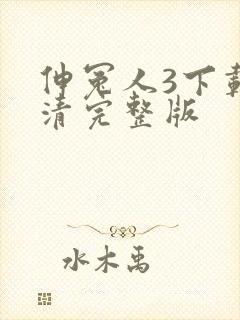 伸冤人3下載
清完整版
水木禹